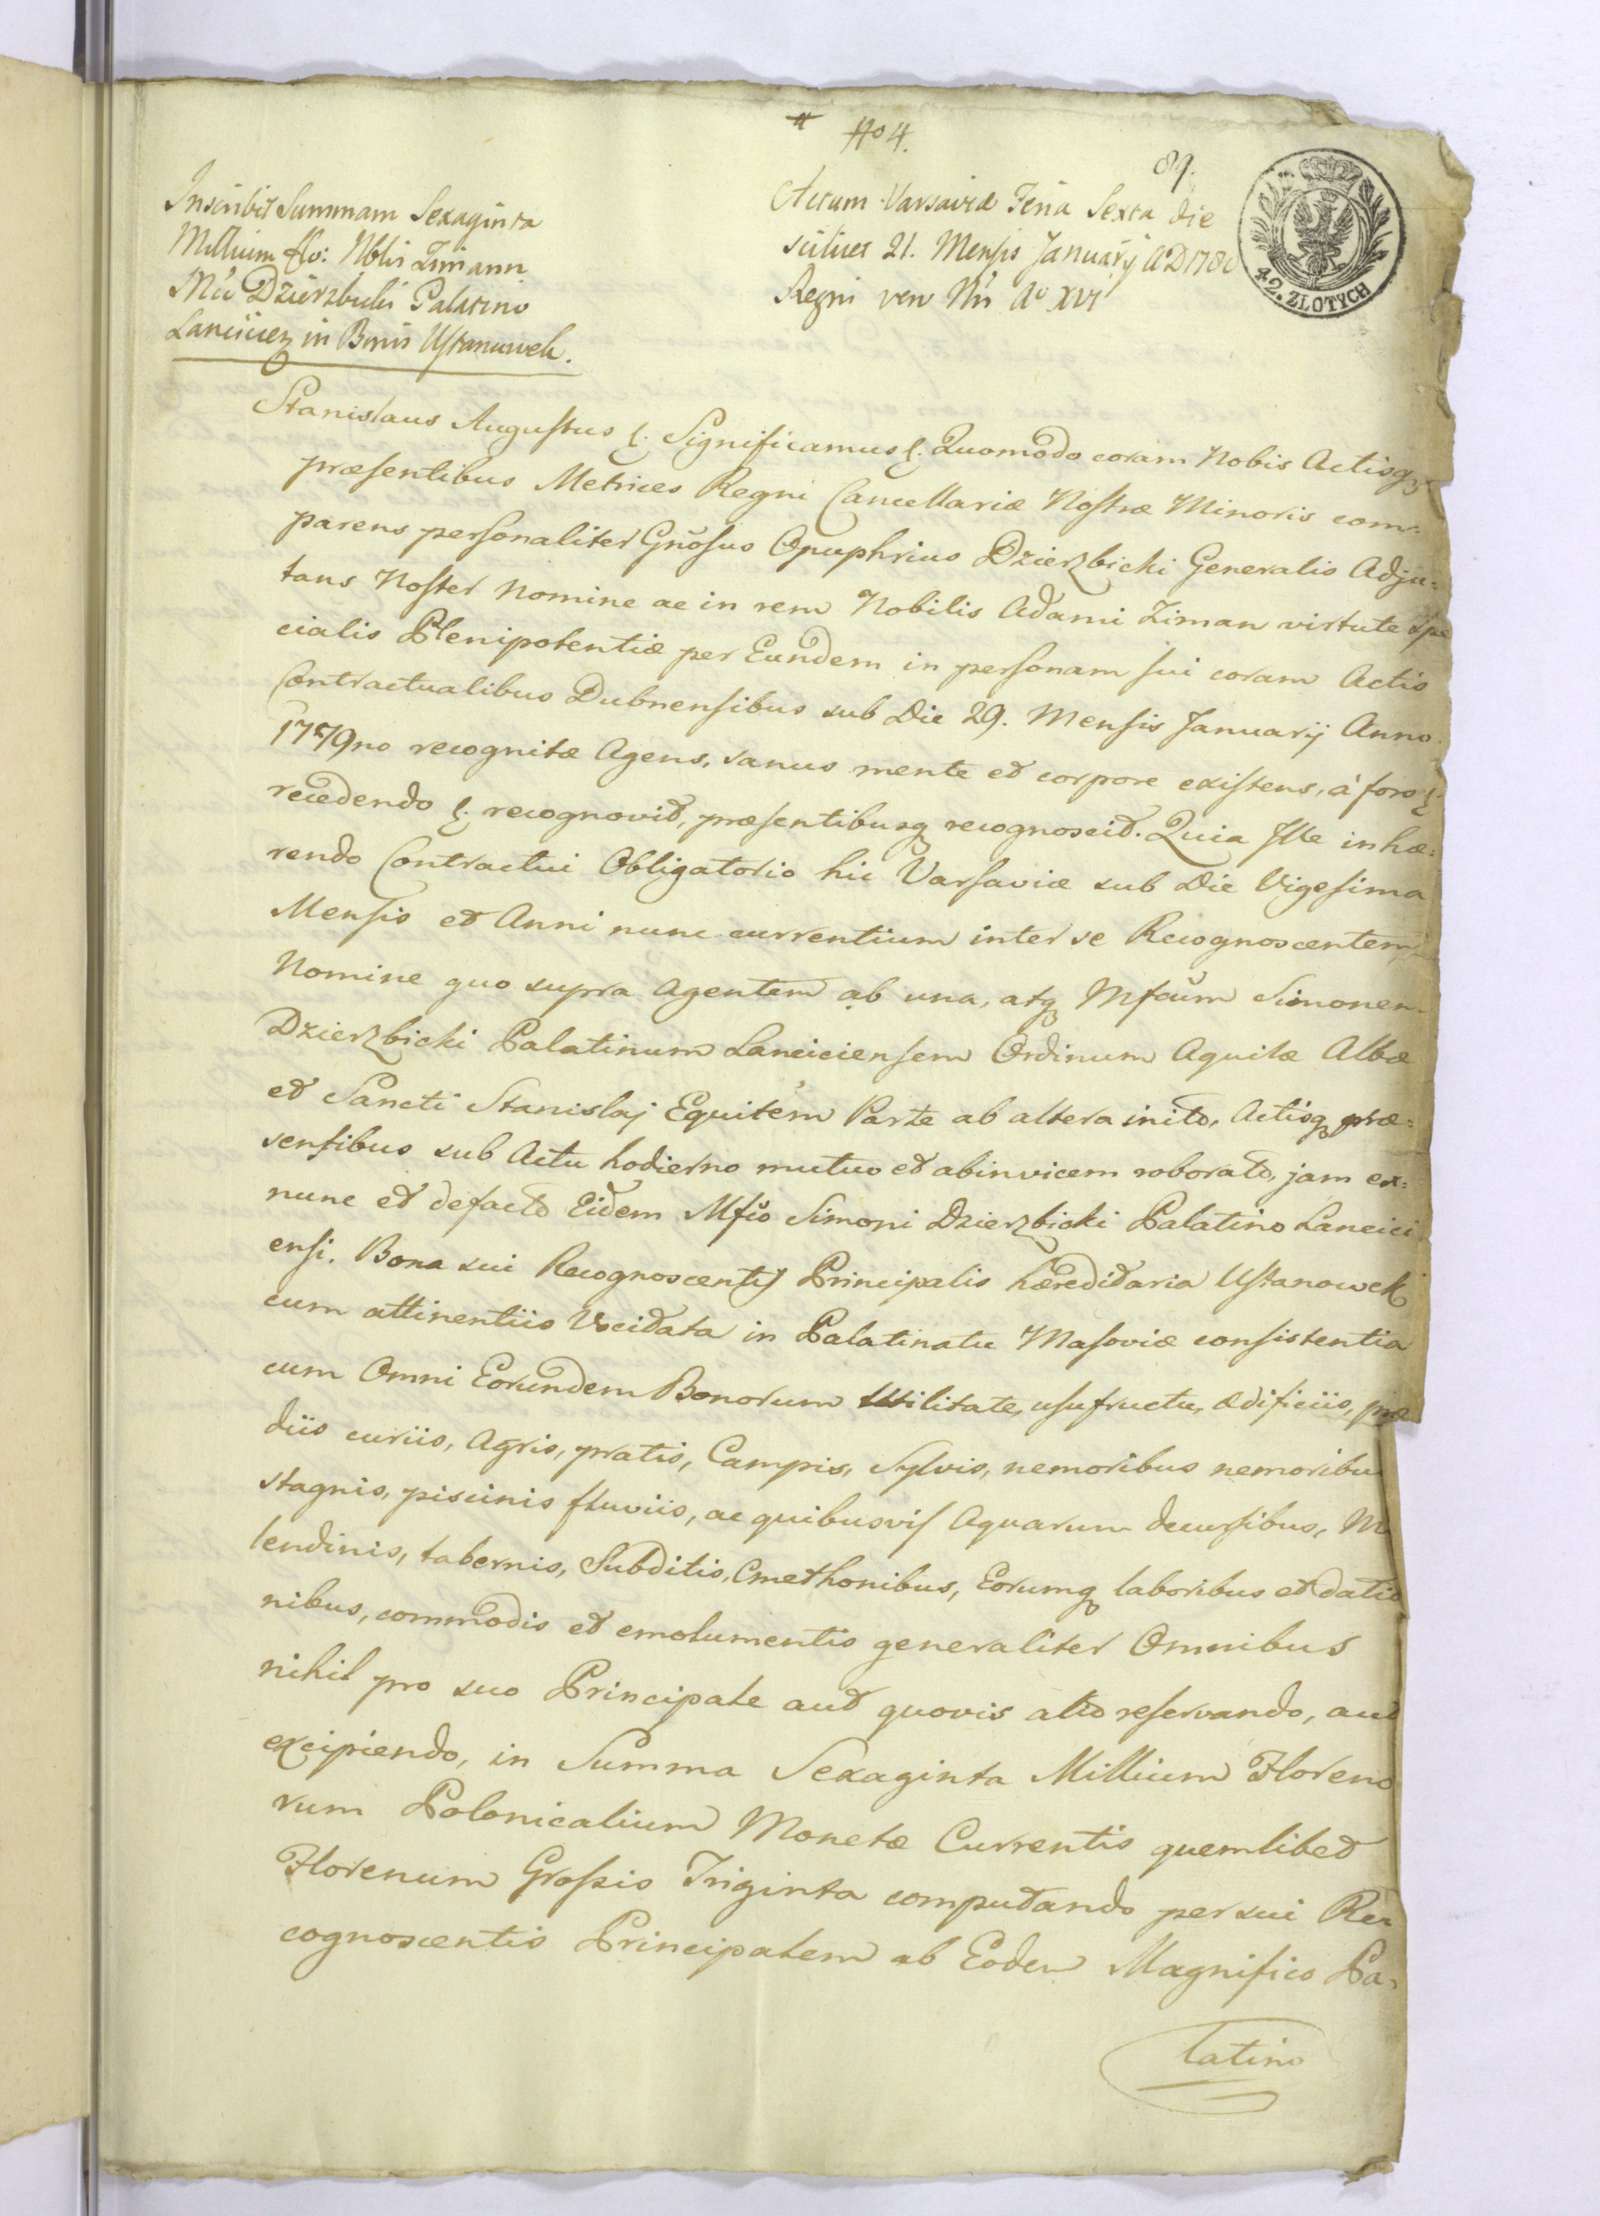 No 4.
89.
Inscribit Summam Sexaginta
Millium flo: Nblis Zimann
Mco Dzierzbicki Palatino
Lancicien in Bonis Ustanuwek.
Actum Varsaviæ Feria Sexta die
scilicet 21. Mensis Januarij AD 1780
Regni vero Nri Ao XVI
42. ZLOTYCH
Stanislaus Augustus &. Significamus &. Quomodo coram Nobis Actisq
præsentibus Metrices Regni Cancellariæ Nostræ Minoris com-
parens personaliter Gnosus Onuphrius Dzierzbicki Generalis Adju=
tans Noster Nomine ac in rem Nobilis Adami Ziman virtute Spe
cialis Plenipotentiæ per Eundem in personam sui coram Actis
Contractualibus Dubnensibus sub Die 29. Mensis Januarij Anno
1779no recognitæ Agens, sanus mente et corpore existens, à foro &
recedendo &. recognovit, præsentibusq recognoscit. Quia Ille inhæ=
rendo Contractui Obligatorio hic Varsaviæ sub Die Vigesima
Mensis et Anni nunc currentium inter se Recognoscentem
Nomine quo supra Agentem ab una, atq Mfcum Simonem
Dzierzbicki Palatinum Lanciciensem Ordinum Aquilæ Albæ
et Sancti Stanislaj Equitem Parte ab altera inito, Actisq præ=
sentibus sub Actu hodierno mutuo et abinvicem roborato, jam ex=
nunc et defacto Eidem Mfco Simoni Dzierzbicki Palatino Lancici
ensi. Bona sui Recognoscentis Principalis hæreditaria Ustanowek
cum attinentiis Vocitata in Palatinatu Masoviæ consistentia
cum Omni Eorundem Bonorum Utilitate, usufructu, ædificiis, præ
diis curiis, Agris, pratis, Campis, Sylvis, nemoribus nemoribu
stagnis, piscinis fluviis, ac quibusvis Aquarum decursibus, Mo
lendinis, tabernis, Subditis, Cmethonibus, Eorumq laboribus et datio
nibus, commodis et emolumentis generaliter Omnibus
nihil pro suo Principale aut quovis alio reservando, aut
excipiendo, in Summa Sexaginta Millium Floreno
rum Polonicalium Monetæ Currentis quemlibet
Florenum Grossis Triginta computando per sui Re=
cognoscentis Principalem ab Eodem Magnifico Pa=
latino